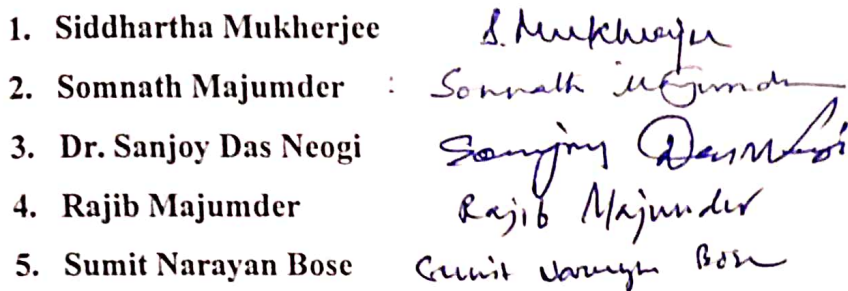 1. Siddhartha Mukherjee S. Mukherjee
2. Somnath Majumder : Somnath Majumder
3. Dr. Sanjoy Das Neogi Sanjoy Das Neogi
4. Rajib Majumder Rajib Majumder
5. Sumit Narayan Bose Sumit Narayan Bose